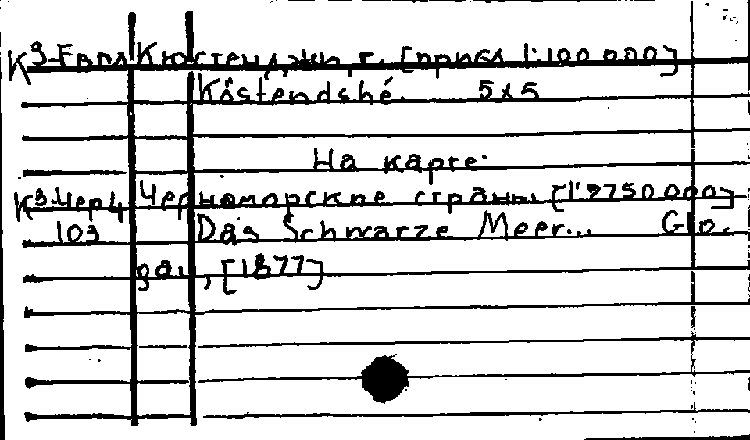 К 9-Евол Кюстенджи, г. [прибл 1:100 000]
Köstendshé. 5x5
На карте:
К 3-Чер4 Черноморские страны [1:3750000]
103 Das Schwarze Meer... Glo.
gau, [1877]